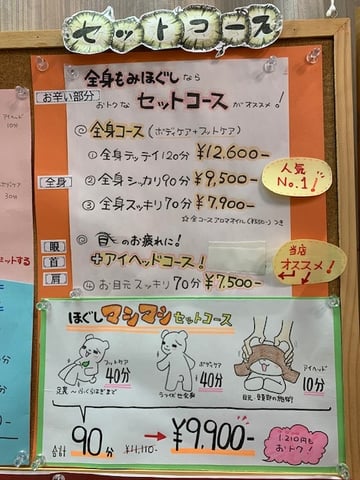 セットコース
全身もみほぐしなら
お辛い部分
おトクな セットコース がオススメ!
◎全身コース(ボディケア+フットケア)
①全身テッテイ120分 ¥12,600-
人気
No.1!
全身
②全身シッカリ90分 ¥9,500-
③全身スッキリ70分 ¥7,900-
眼
首
肩
◎目のお疲れに!
+アイヘッドコース!
当店
オススメ!
④お目元スッキリ70分 ¥7,500-
アイヘッド
10分
ボディケア
30分
ほぐしマシマシセットコース
フットケア
40分
ボディケア
40分
アイヘッド
10分
足裏〜ふくらはぎまで
合計
90分
¥11,110-
→ ¥9,900-
1,210円も
おトク!